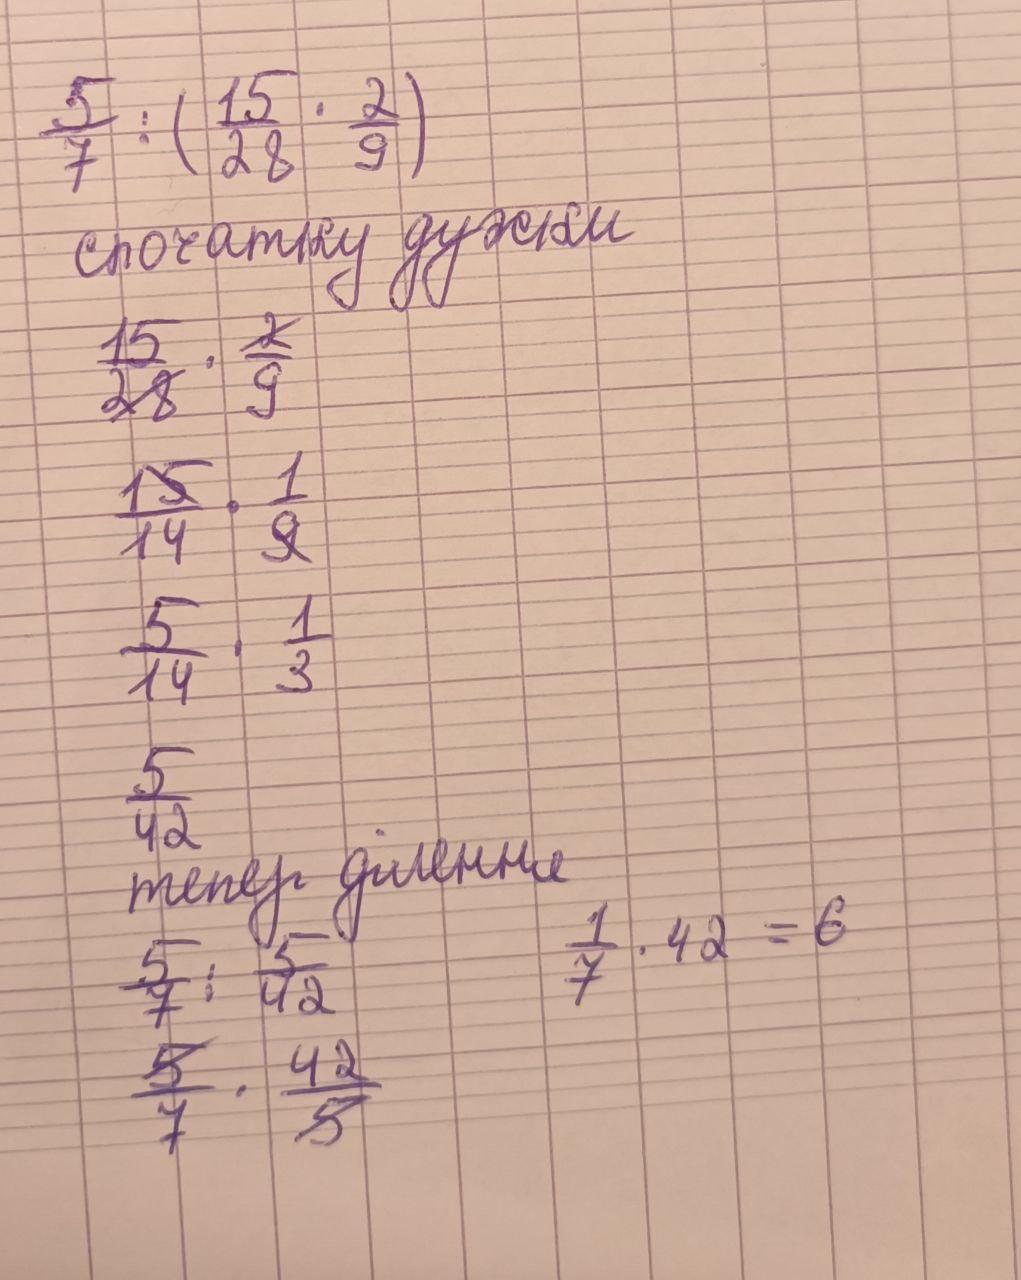 5/7 : (15/28 · 2/9)
спочатку дужки
15/28 · 2/9
15/14 · 1/9
5/14 · 1/3
5/42
тепер ділення
5/7 : 5/42
1/7 · 42 = 6
5/7 · 42/5